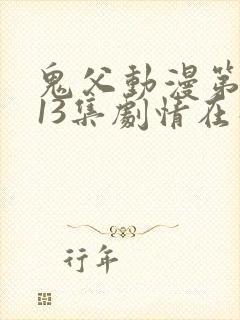 鬼父動漫第
13集劇情在
行年